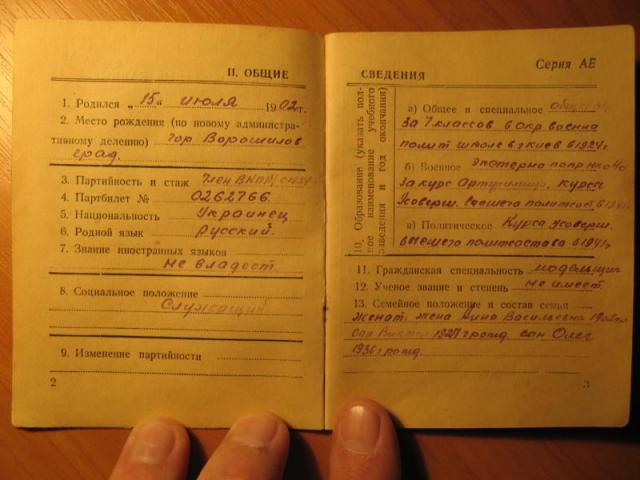 II. ОБЩИЕ
1. Родился „15“ июля 1902 г.
2. Место рождения (по новому администра-
тивному делению) гор Ворошилов
град.
3. Партийность и стаж Член ВКП/б
4. Партбилет № 0262766
5. Национальность Украинец
6. Родной язык Русский.
7. Знание иностранных языков
не владеет
8. Социальное положение
Служащий
9. Изменение партийности
2
СВЕДЕНИЯ
Серия АЕ
10. Образование (указать пол-
ное наименование учебного
заведения и год окончания)
а) Общее и специальное
за 7 классов в окр военно
полит школе в г Киев в 1924г
б) Военное Экстерно
за курс курсы
Усоверш. высшего политсост в
в) Политическое Курсы усоверш.
высшего политсостава в 1941г
11. Гражданская специальность модельщик
12. Ученое звание и степень не имеет
13. Семейное положение и состав семьи
Женат: жена Васильевна
сын Виктор 1927 г рожд. сын Олег
1936 г рожд.
3